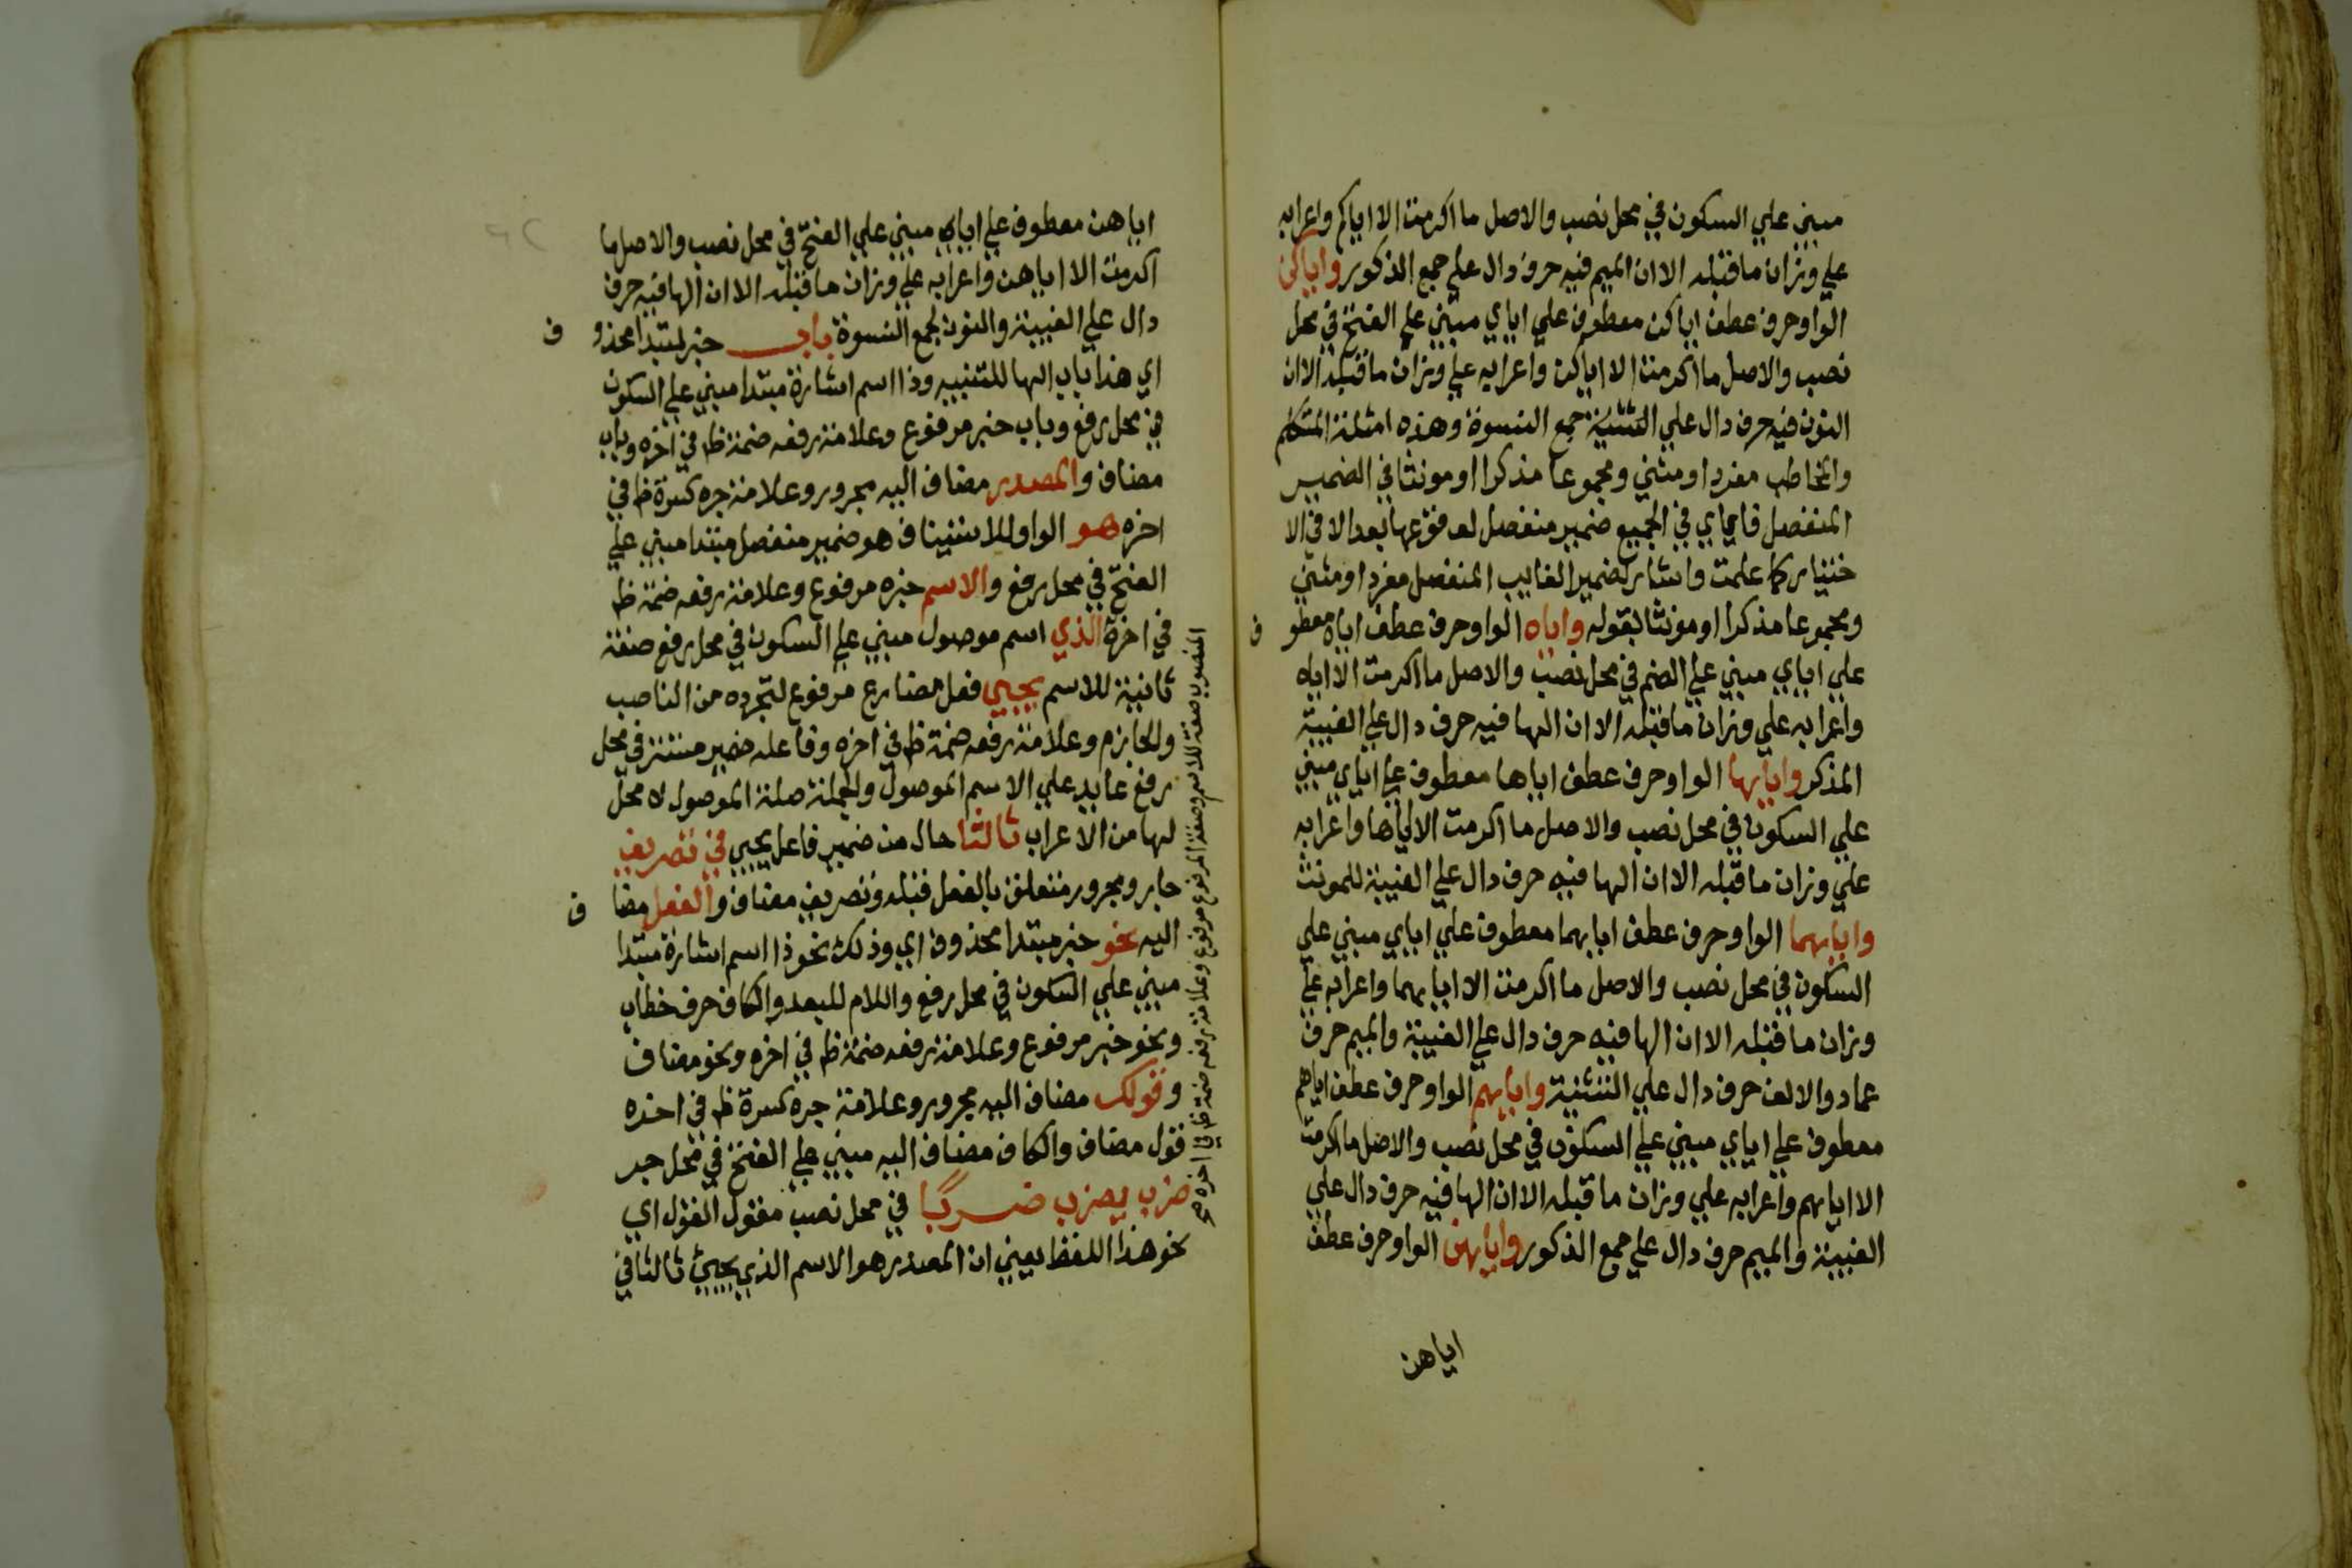 مبني علي السكون في محل نصب والاصل ما اكرمت الا اياكم واعرابه
علي وزان ما قبله الا ان الميم فيه حرف دال علي جمع الذكور واياكن
الواو حرف عطف اياكن معطوف علي اياي مبني علي الفتح في محل
نصب والاصل ما اكرمت الا اياكن واعرابه علي وزان ما قبله الا ان
النون فيه حرف دال علي جمع النسوة وهذه امثلة المتكلم
والمخاطب مفردا ومثني ومجموعا مذكرا او مونثا في الضمير
المنفصل فاياي في الجميع ضمير منفصل لوقوعها بعد الا في الا
ختيار كما علمت واشار لضمير الغايب المنفصل مفردا ومثني
ومجموعا مذكرا او مونثا بقوله واياه الواو حرف عطف اياه معطوف
علي اياي مبني علي الضم في محل نصب والاصل ما اكرمت الا اياه
واعرابه علي وزان ما قبله الا ان الها فيه حرف دال علي الغيبة
المذكر واياها الواو حرف عطف اياها معطوف علي اياي مبني
علي السكون في محل نصب والاصل ما اكرمت الا اياها واعرابه
علي وزان ما قبله الا ان الها فيه حرف دال علي الغيبة للمونث
واياهما الواو حرف عطف اياهما معطوف علي اياي مبني علي
السكون في محل نصب والاصل ما اكرمت الا اياهما واعرابه علي
وزان ما قبله الا ان الها فيه حرف دال علي الغيبة والميم حرف
عماد والالف حرف دال علي التثنية واياهم الواو حرف عطف اياهم
معطوف علي اياي مبني علي السكون في محل نصب والاصل ما اكرمت
الا اياهم واعرابه علي وزان ما قبله الا ان الها فيه حرف دال علي
الغيبة والميم حرف دال علي جمع الذكور واياهن الواو حرف عطف
اياهن
اياهن معطوف علي اياي مبني علي الفتح في محل نصب والاصل ما
اكرمت الا اياهن واعرابه علي وزان ما قبله الا ان الها فيه حرف
دال علي الغيبة والنون لجمع النسوة باب خبر لمبتدا محذوف
اي هذا باب الها للتنبيه وذا اسم اشارة مبتدا مبني علي السكون
في محل رفع وباب خبر مرفوع وعلامة رفعه ضمة ظ في اخره وباب
مضاف والمصدر مضاف اليه مجرور وعلامة جره كسرة ظ في
اخره هو الواو للاستيناف هو ضمير منفصل مبتدا مبني علي
الفتح في محل رفع والاسم خبره مرفوع وعلامة رفعه ضمة ظ
في اخره الذي اسم موصول مبني علي السكون في محل رفع صفة
ثانية للاسم يجيي فعل مضارع مرفوع لتجرده من الناصب
والجازم وعلامة رفعه ضمة ظ في اخره وفاعله ضمير مستتر في محل
رفع عايد علي الاسم الموصول والجملة صلة الموصول لا محل
لها من الاعراب ثالثا حال من ضمير فاعل يجيي في تصريف
جار ومجرور متعلق بالفعل قبله وتصريف مضاف والفعل مضاف
اليه نحو خبر مبتدا محذوف اي وذلك نحو ذا اسم اشارة مبتدا
مبني علي السكون في محل رفع واللام للبعد والكاف حرف خطاب
ونحو خبر مرفوع وعلامة رفعه ضمة ظ في اخره ونحو مضاف
وقولك مضاف اليه مجرور وعلامة جره كسرة ظ في اخره
قول مضاف والكاف مضاف اليه مبني علي الفتح في محل جر
ضرب يضرب ضربا في محل نصب مقول القول اي
نحو هذا اللفظ يعني ان المصدر هو الاسم الذي يجيئ ثالثا في
المنصوب صفة للاسم وصفة المرفوع مرفوع وعلامة رفعه ضمة ظ في اخره صح